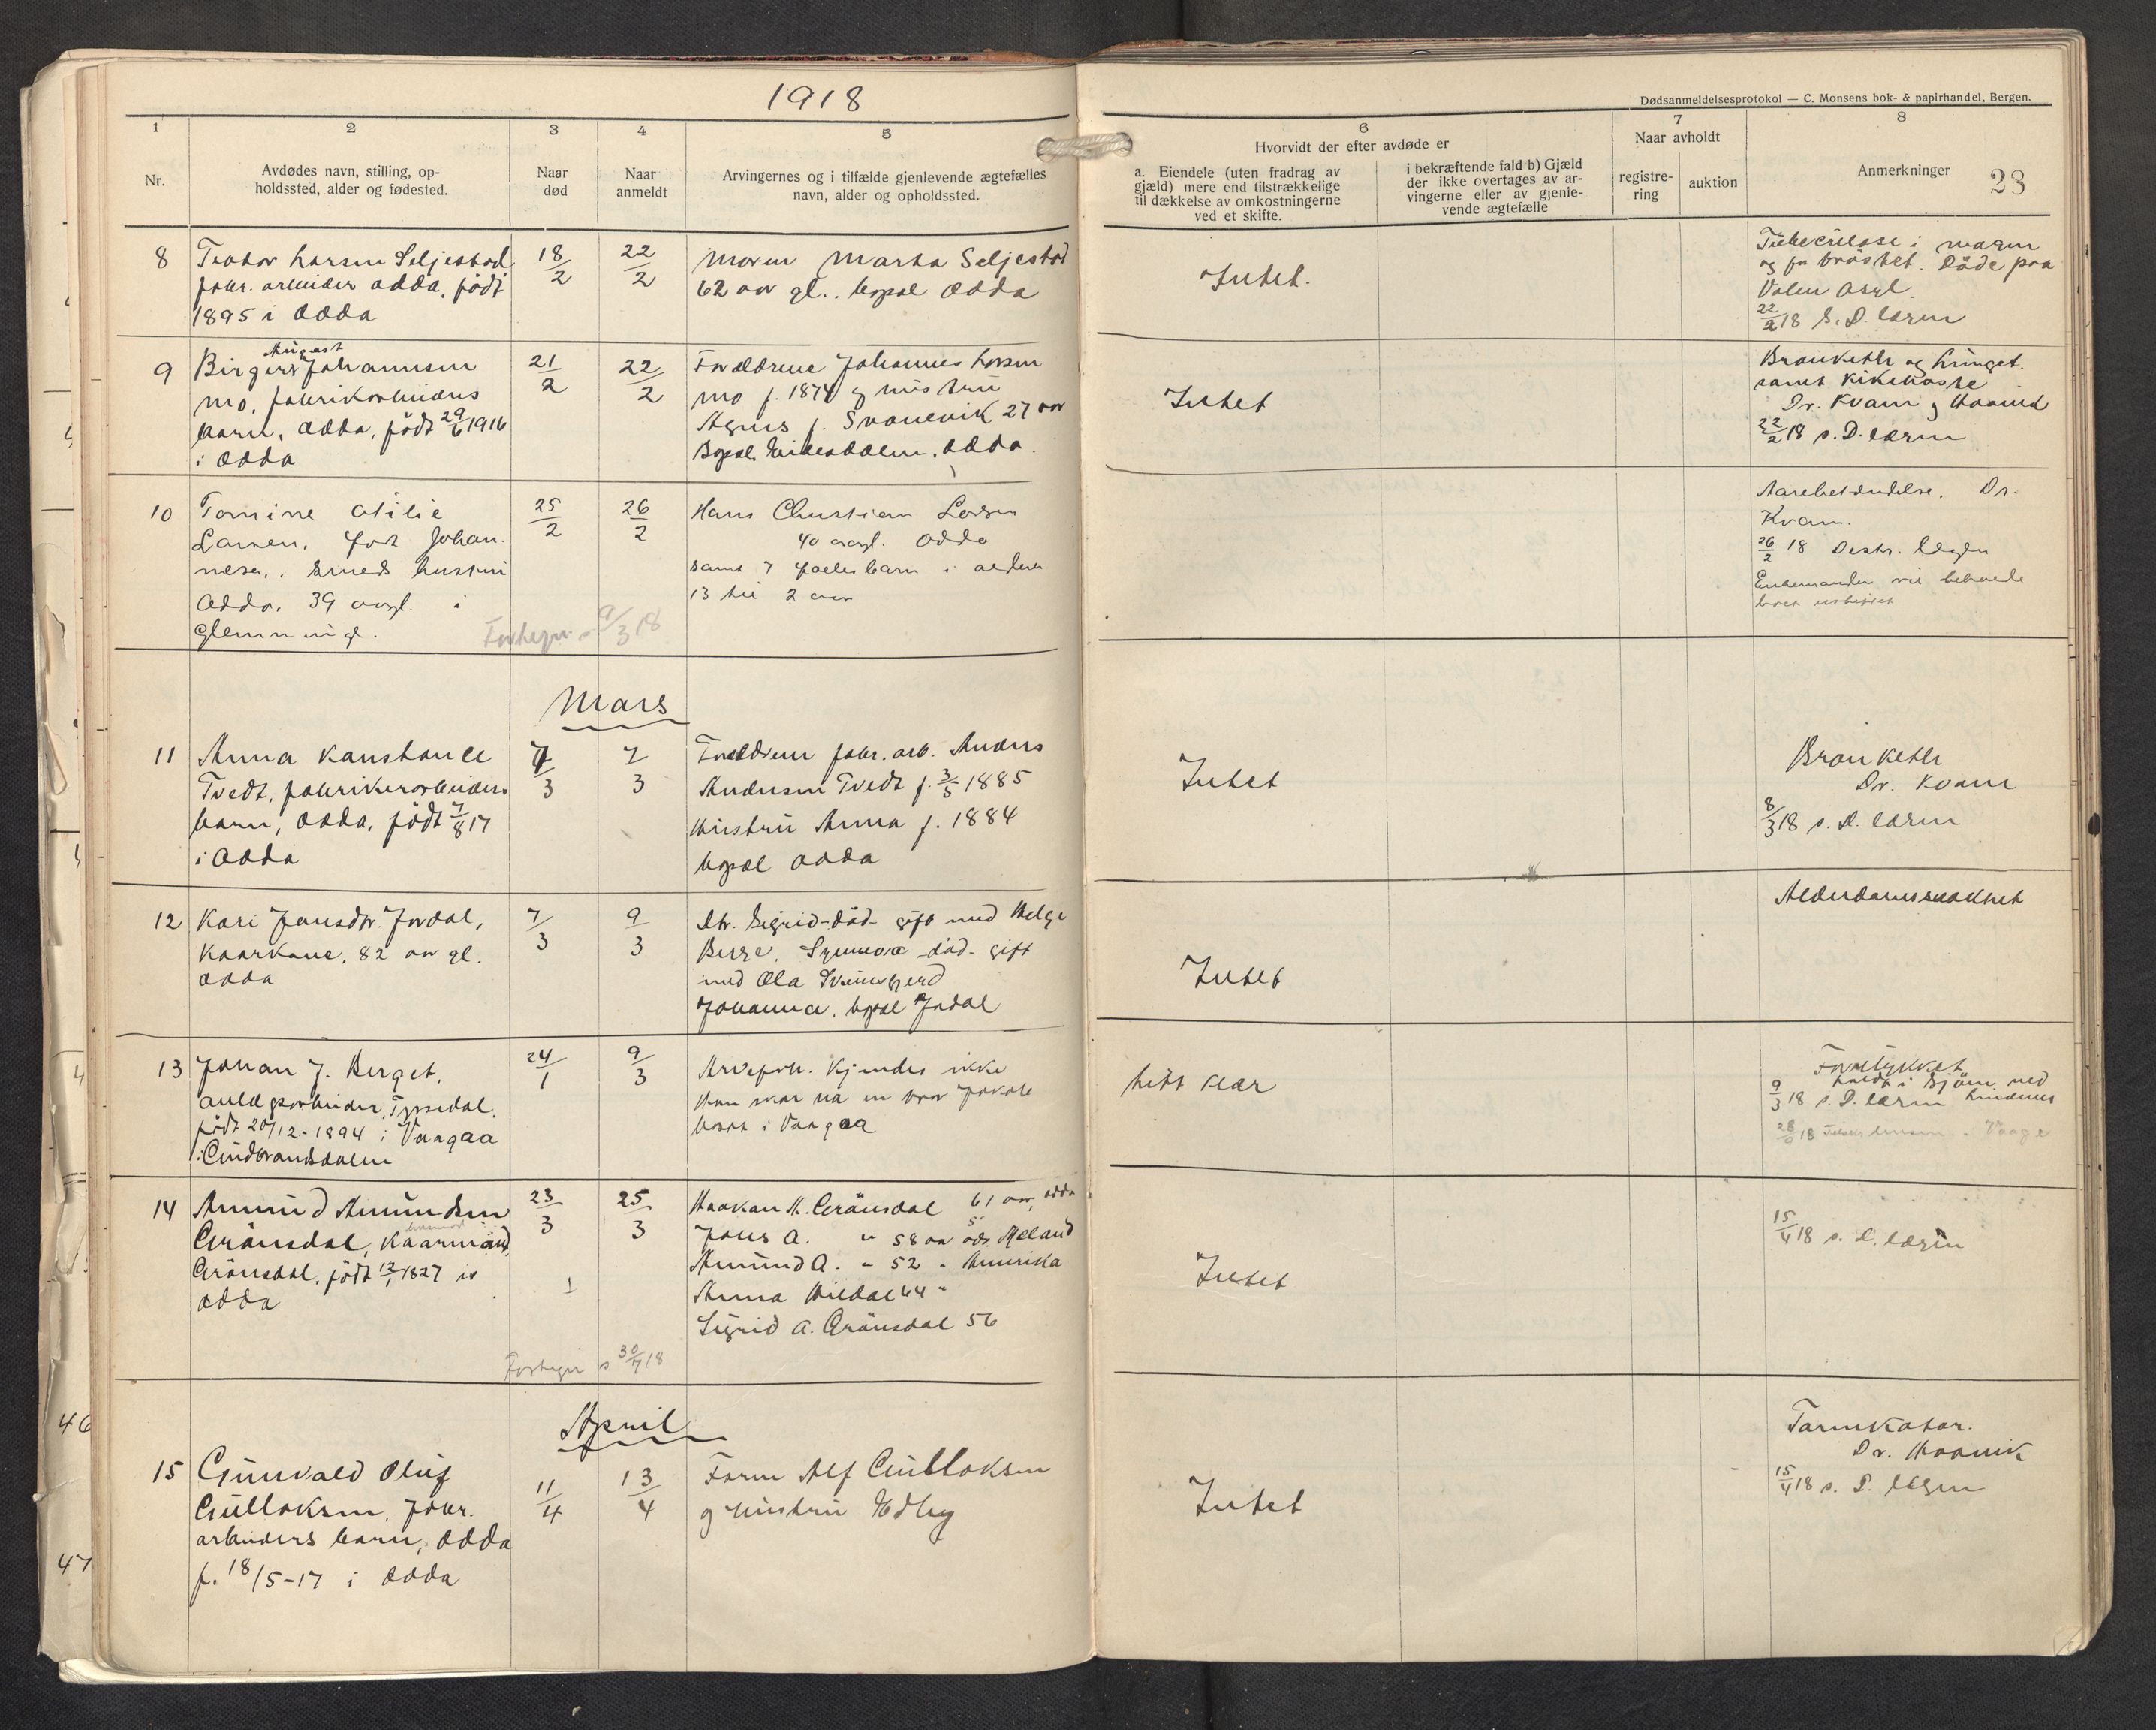 1918
Dødsanmeldelsesprotokol — C. Monsens bok- & papirhandel, Bergen.
1
2
3
4
5
6
7
8
Nr.
Avdødes navn, stilling, op-
holdssted, alder og fødested.
Naar
død
Naar
anmeldt
Arvingernes og i tilfælde gjenlevende ægtefælles
navn, alder og opholdssted.
Hvorvidt der efter avdøde er
a. Eiendele (uten fradrag av
gjæld) mere end tilstrækkelige
til dækkelse av omkostningerne
ved et skifte.
i bekræftende fald b) Gjæld
der ikke overtages av ar-
vingerne eller av gjenle-
vende ægtefælle
Naar avholdt
registre-
ring
auktion
Anmerkninger
23
8
Teodor Larsen Seljestad
fabr. arbeider Odda, født
1895 i Odda
18/2
22/2
Moren Marta Seljestad
62 aar gl. bopæl Odda
Intet.
Tuberculose i maven
og for brøstet. Døde paa
Valen Asyl.
22/2 18 s. D. lægen
9
August
Birger Johannesen
Mo, fabrikarbeiders
barn, Odda, født 29/6 1916
i Odda
21/2
22/2
Forældrene Johannes Larsen
Mo f. 1874 og hustru
Agnes f. Svanevik 27 aar
Bopæl Eidesdalen, Odda.
Intet
Bronkith og Lunget.
samt kikhoste
Dr. Kvam og
22/2 18 s. D. lægen
10
Tomine Otilie
Larsen, født Johan-
nesen, smeds hustru
Odda, 39 aargl. i
Glemminge.
25/2
26/2
Hans Christian Larsen
40 aargl. Odda
samt 7 fælles barn i alderen
13 til 2 aar
9/3 18
Aarebetændelse. Dr.
Kvam.
26/2 18 Distr. lægen
Enkemanden vil beholde
boet uskiftet
Mars
11
Anna Konstance
Tvedt, fabrikerarbeiders
barn, Odda, født 7/8 17
i Odda
7/3
7/3
Forældrene fabr. arb. Anders
Andersen Tvedt f. 3/5 1885
Hustru Anna f. 1884
bopæl Odda
Intet
Bronkith
Dr. Kvam
8/3 18 s. D. lægen
12
Kari Jonsdtr. Jordal,
Kaarkone, 82 aar gl.
Odda
7/3
9/3
Dtr. Sigrid - død - gift med Helge
Berge, Synneva - død - gift
med Ola
Johanna, bopæl Jordal
Intet
Alderdomssvakhet
13
Johan J. Berget,
anlægsarbeider, Tyssedal.
født 20/12-1894 i Vaagaa
i Gudbrandsdalen
24/1
9/3
Arveforh. kjendes ikke
Han skal ha en bror Jakob
bosat i Vaagaa
litt klær
Forulykket
9/3 18 s. D. lægen
14
Amund Amundsen
Grönsdal, Kaarmand,
Grönsdal, født 13/1 1827 i
Odda
23/3
25/3
Haakon A. Grönsdal 61 aar, Odda
Johs A. " 58 aar Mæland
Amund A. " 52 " Amerika
Anna Hildal 64 "
Sigrid A. Grönsdal 56
30/7 18
Intet
15/4 18 s. D. lægen
April
15
Gunvald Oluf
Gulloksen, fabr.
arbeiders barn, Odda
f. 18/5-17 i Odda
11/4
13/4
Faren Alf Gulloksen
og hustru Edby
Intet
Tarmkatar.
Dr. Haavik
15/4 18 s. D. lægen
46
47